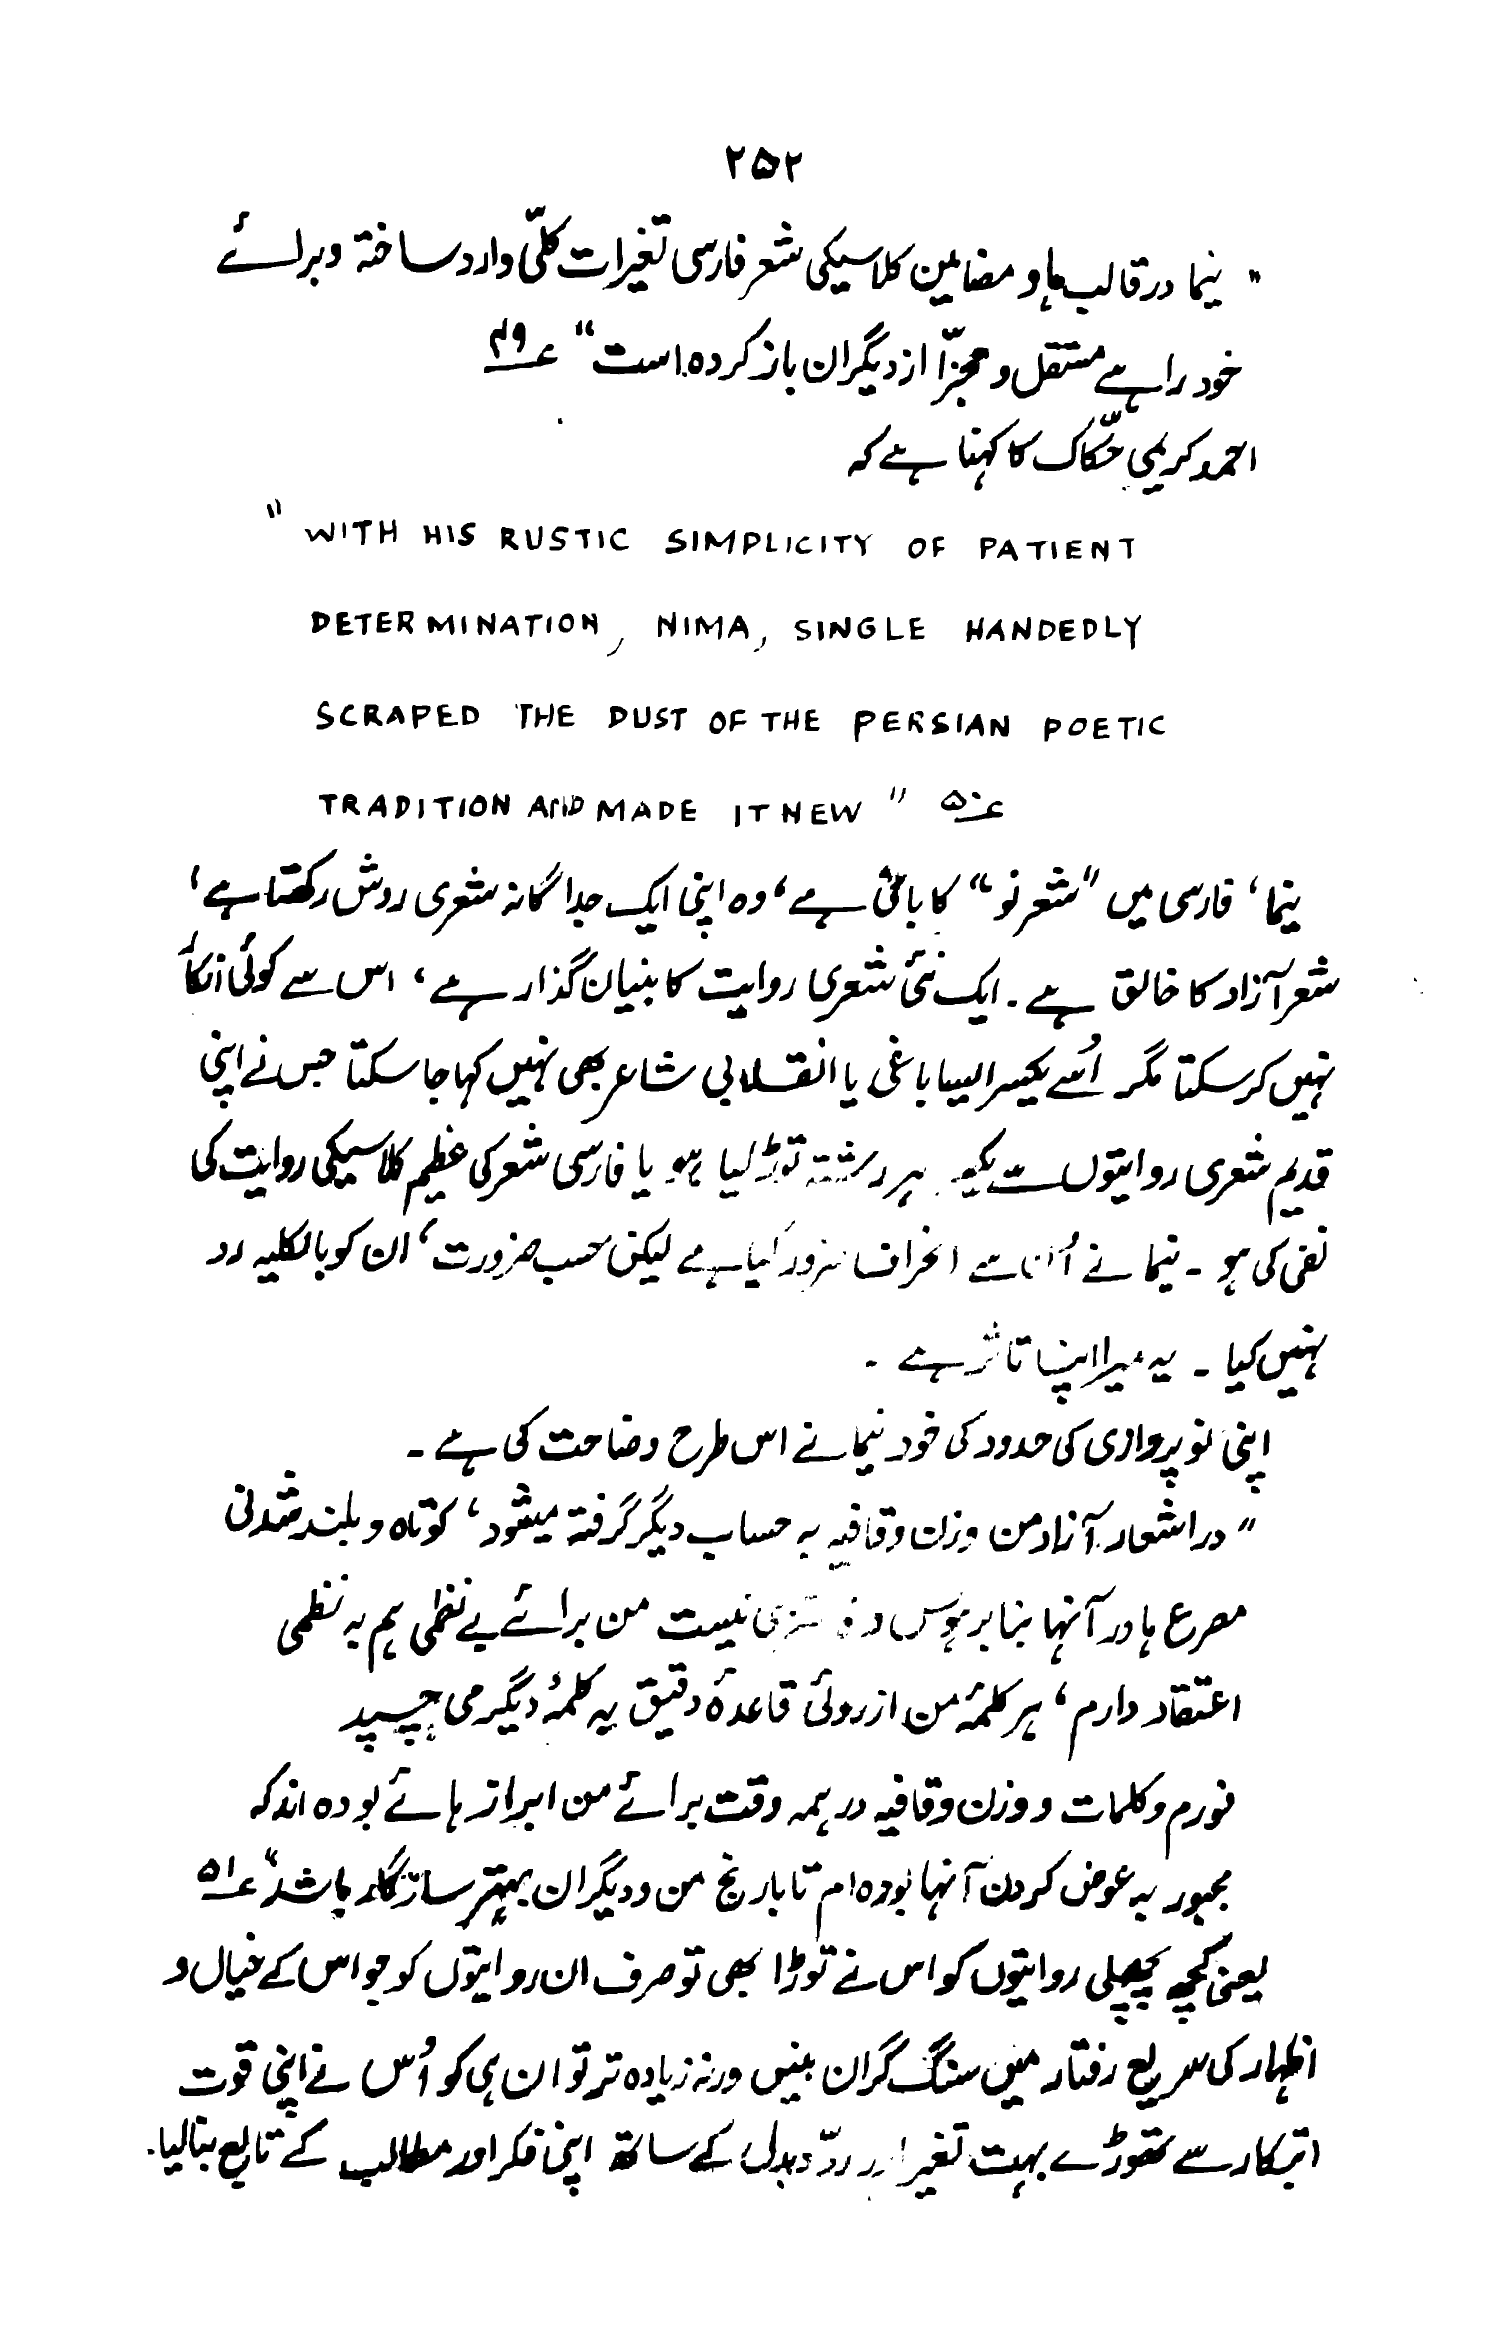 ۲۵۲
" نیما در قالب ہا و مضامین کلاسیکی شعر فارسی تغیرات کلّی وارد ساختہ و برائے
خود راہے مستقل و مجزّا از دیگران باز کردہ است" ؏۴۹
احمد کریمی حکّاک کا کہنا ہے کہ
" WITH HIS RUSTIC SIMPLICITY OF PATIENT
DETERMINATION, NIMA, SINGLE HANDEDLY
SCRAPED THE DUST OF THE PERSIAN POETIC
TRADITION AND MADE IT NEW " ؏۵۰
نیما، فارسی میں "شعر نو" کا بانی ہے، وہ اپنی ایک جداگانہ شعری روش رکھتا ہے،
شعر آزاد کا خالق ہے۔ ایک نئی شعری روایت کا بنیان گذار ہے، اس سے کوئی انکار
نہیں کر سکتا مگر اُسے یکسر ایسا باغی یا انقلابی شاعر بھی نہیں کہا جا سکتا جس نے اپنی
قدیم شعری روایتوں سے ہر رشتہ توڑ لیا ہو یا فارسی شعر کی عظیم کلاسیکی روایت کی
نفی کی ہو۔ نیما نے اُن سے انحراف ضرور کیا ہے لیکن حسب ضرورت، ان کو بالکلیہ رد
نہیں کیا۔ یہ میرا اپنا تاثر ہے۔
اپنی نو پردازی کی حدود کی خود نیما نے اس طرح وضاحت کی ہے۔
" در اشعار آزاد من وزن و قافیہ بہ حساب دیگر گرفتہ میشود، کوتاہ و بلند شدنی
مصرع ہا در آنہا بنا بر ہوس و نیست من برائے بے نظمی ہم بہ نظمی
اعتقاد دارم، ہر کلمۂ من از روئی قاعدۂ دقیق بہ کلمۂ دیگر می چسپد
فورم و کلمات و وزن و قافیہ در ہمہ وقت برائے من ابراز ہائے بودہ اند کہ
مجبور بہ عوض کردن آنہا بودہ ام تا با رنج من و دیگران بہتر سازگار باشد" ؏۵۱
یعنی کچھ پچھلی روایتوں کو اس نے توڑا بھی تو صرف ان روایتوں کو جو اس کے خیال و
اظہار کی سریع رفتار میں سنگ گران بنیں ورنہ زیادہ تر تو ان ہی کو اُس نے اپنی قوت
ابتکار سے تھوڑے بہت تغیر اور ردّ و بدل کے ساتھ اپنی فکر اور مطالب کے تابع بنا لیا۔